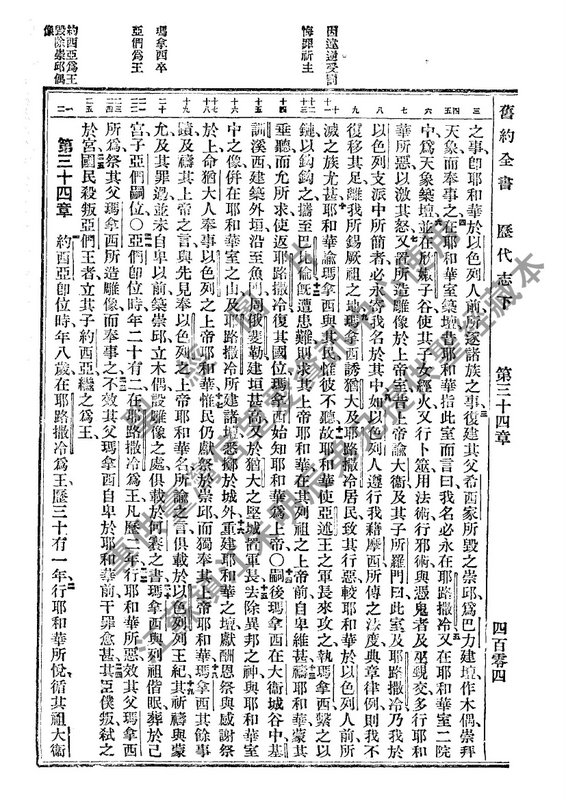 舊約全書 歷代志下 第三十四章 四百零四
悔罪祈主
瑪拿西卒
亞們爲王
約西亞爲王
毀除崇邱偶
像
之事卽耶和華於以色列人前所逐諸族之事復建其父希西家所毀之崇邱爲巴力建壇作木偶崇拜
天象而奉事之在耶和華室築壇昔耶和華指此室而言曰我名必永在耶路撒冷又在耶和華室二院
中爲天象築壇並在欣嫩子谷使其子女經火又行卜筮用法術行邪術與憑鬼者及巫覡交多行耶和
華所惡以激其怒又置所造雕像於上帝室昔上帝諭大衛及其子所羅門曰此室及耶路撒冷乃我於
以色列支派中所簡者必永寄我名於其中如以色列人遵行我藉摩西所傳之法度與典章律例則我不
復移其足離我所錫厥祖之地瑪拿西誘猶大及耶路撒冷居民致其行惡較耶和華於以色列人前所
滅之族尤甚耶和華諭瑪拿西與其民惟彼不聽故耶和華使亞述王之軍長來攻之執瑪拿西繫之以
鏈以鈎鈎之攜至巴比倫旣遭患難則求其上帝耶和華在其列祖之上帝前自卑維甚禱耶和華蒙其
垂聽而允所求使返耶路撒冷復其國位瑪拿西始知耶和華爲上帝○嗣後瑪拿西在大衛城谷中基
訓溪西建築外垣沿至魚門周俄斐勒建垣甚高又於猶大之堅城置軍長去除異邦之神與耶和華室
中之像併在耶和華室之山及耶路撒冷所建諸壇悉擲於城外重建耶和華之壇獻酬恩祭與感謝祭
於上命猶大人奉事以色列之上帝耶和華惟民仍獻祭於崇邱而獨奉其上帝耶和華瑪拿西其餘事
蹟及禱其上帝之言與先見奉以色列之上帝耶和華名所諭之言俱載於以色列列王紀其祈禱與蒙
允及其罪過並未自卑以前築崇邱立木偶設雕像之處俱載於何賽之書瑪拿西與列祖偕眠葬於己
宮子亞們嗣位○亞們卽位時年二十有二在耶路撒冷爲王凡歷二年行耶和華所惡效其父瑪拿西
所爲祭其父瑪拿西所造雕像而奉事之不效其父瑪拿西自卑於耶和華前干罪愈甚其臣僕叛弒之
於宮國民殺叛亞們王者立其子約西亞繼之爲王
第三十四章 約西亞卽位時年八歲在耶路撒冷爲王歷三十有一年行耶和華所悅循其祖大衛